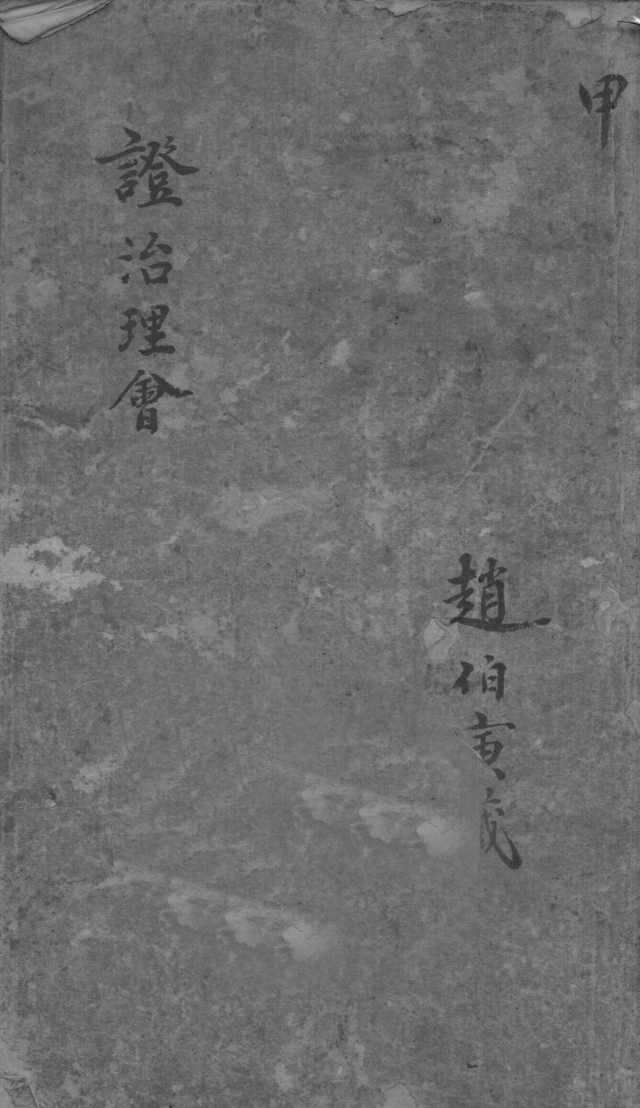 甲
趙伯寅藏
證治理會